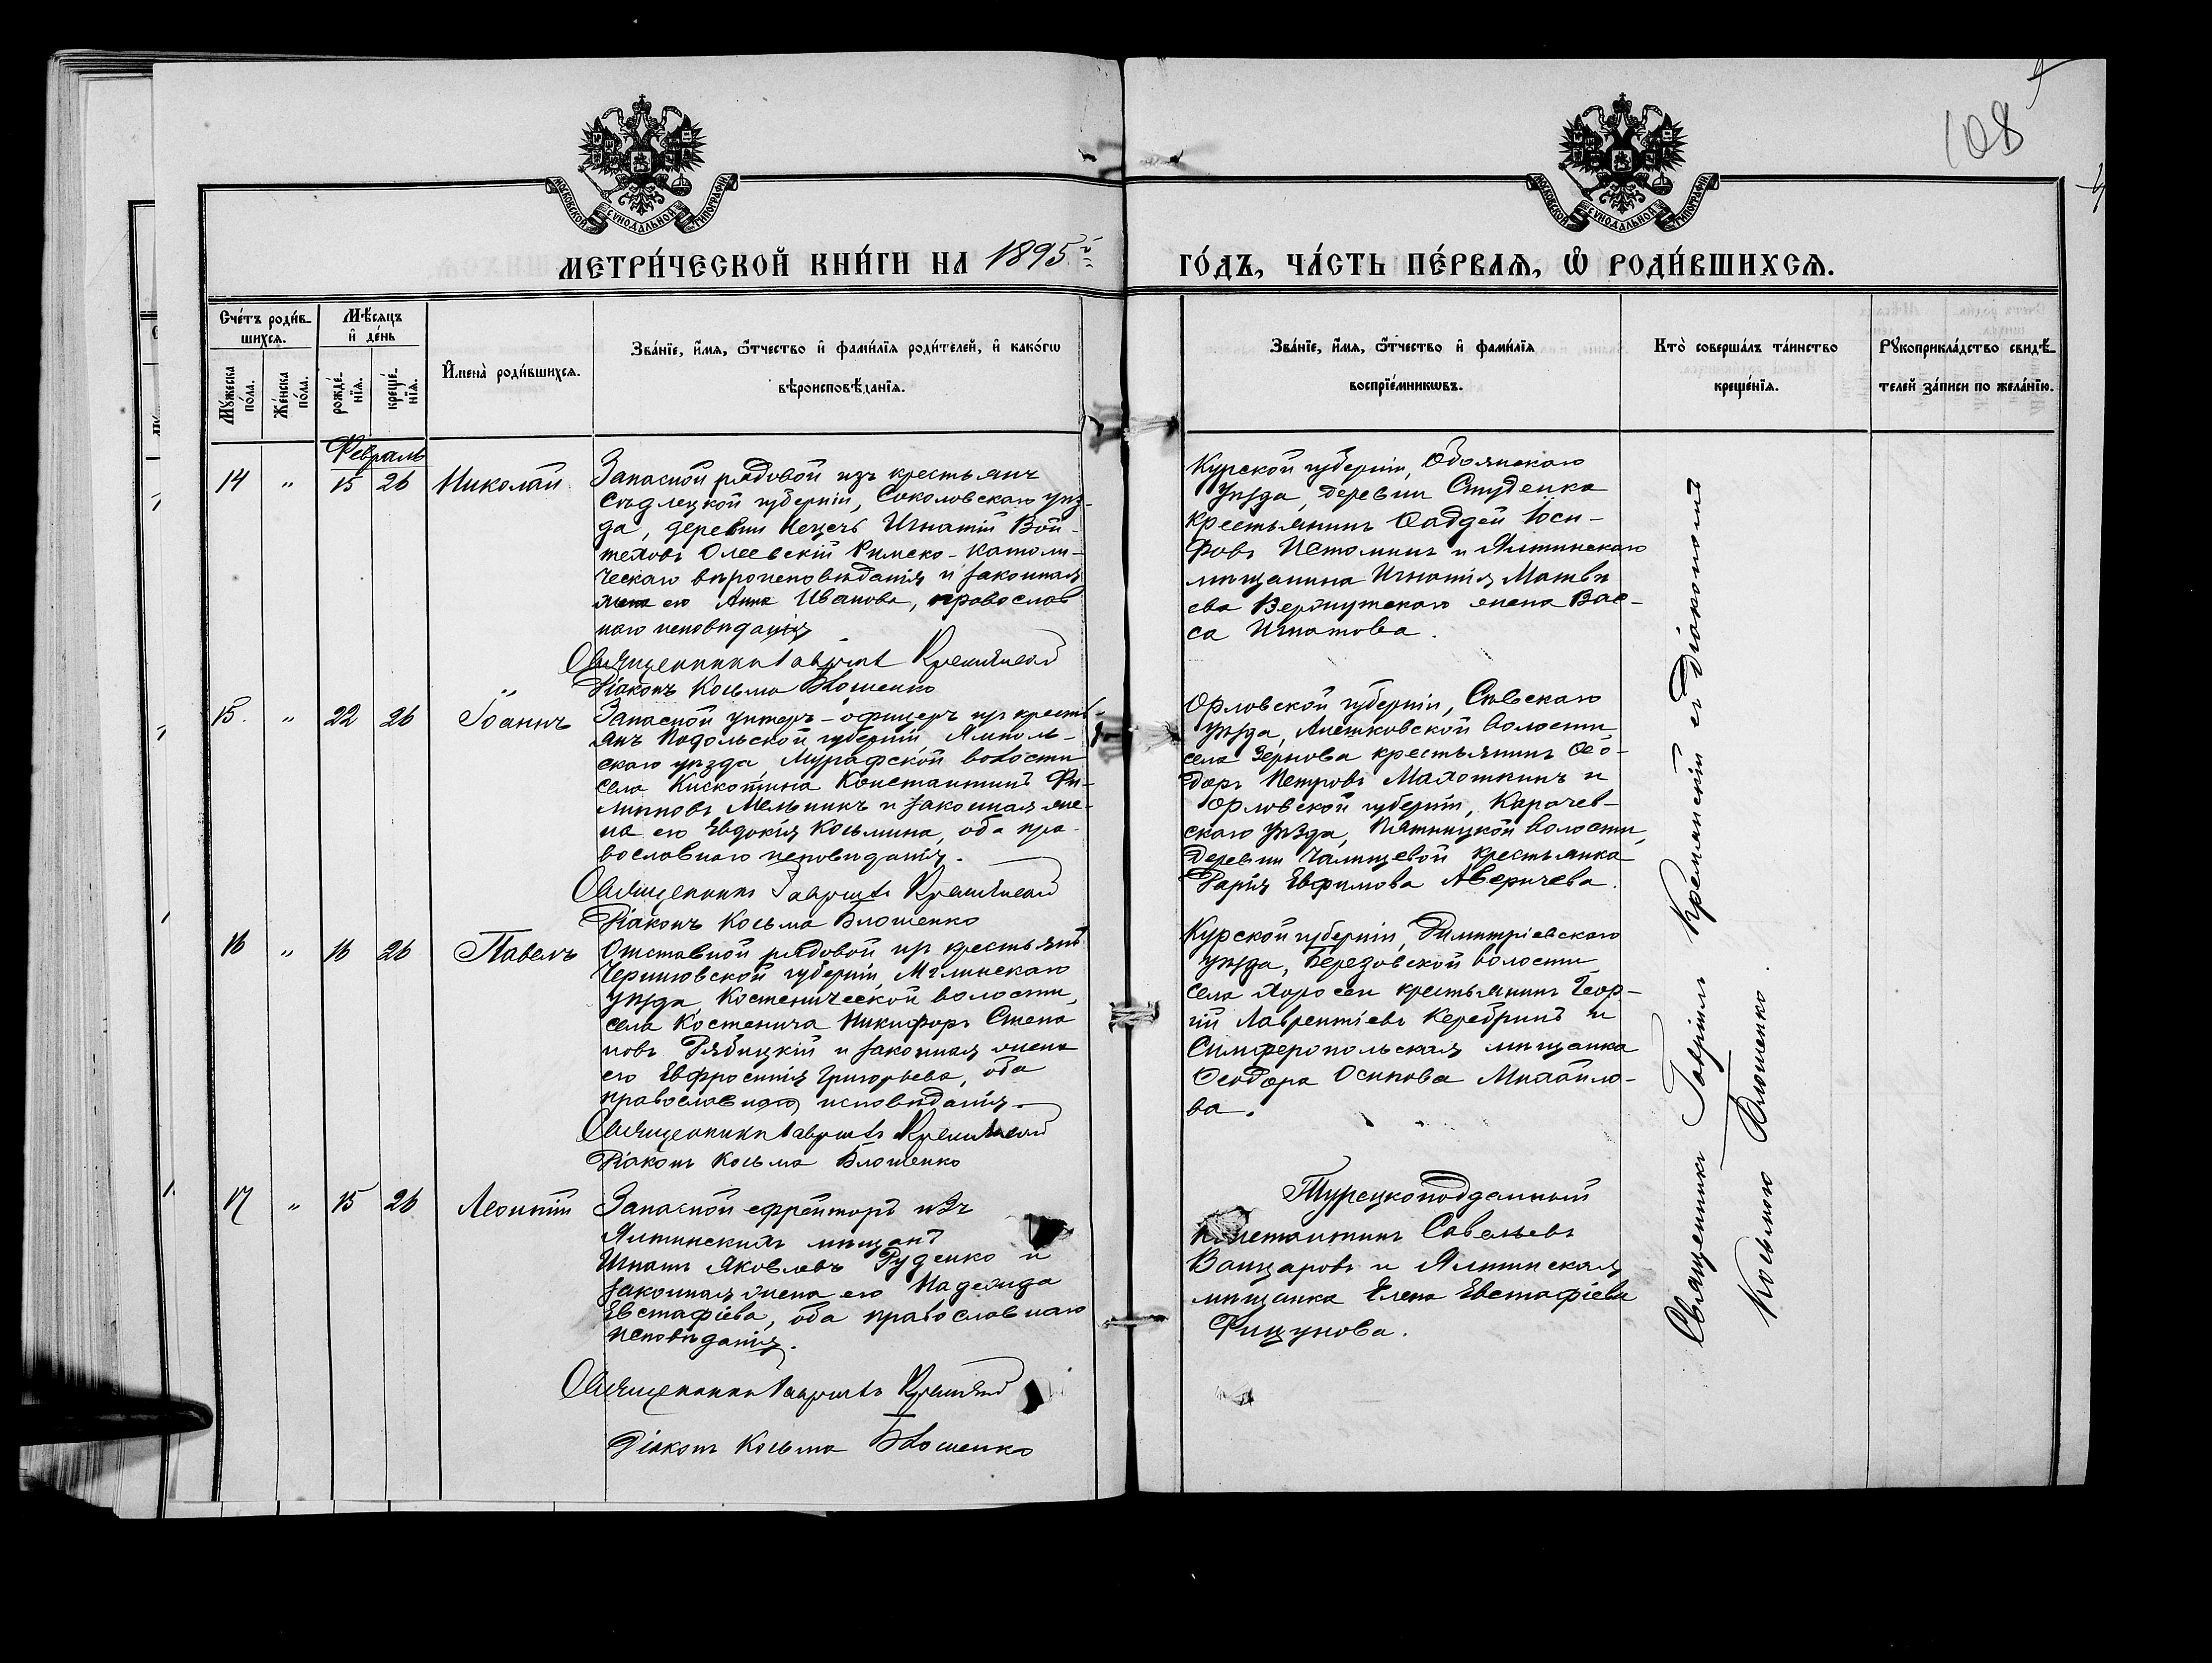 108
МОСКОВСКОЙ СУНОДАЛЬНОЙ ТИПОГРАФІИ
МОСКОВСКОЙ СУНОДАЛЬНОЙ ТИПОГРАФІИ
МЕТРИ́ЧЕСКОЙ КНИ́ГИ НА 1895й
ГО́ДЪ, ЧА́СТЬ ПЕ́РВАѦ, Ѡ РОДИ́ВШИХСѦ.
Сче́тъ роди́в-
шихсѧ.
Мѣ́сѧцъ
и҆ де́нь
Мꙋ́жеска
по́ла.
Же́нска
по́ла.
рожде́-
нїѧ.
креще́-
нїѧ.
И҆мена̀ роди́вшихсѧ.
Зва́нїе, и҆́мѧ, ѻ҆́тчество и҆ фами́лїѧ роди́телей, и҆ како́гѡ
вѣроисповѣ́данїѧ.
Зва́нїе, и҆́мѧ, ѻ҆́тчество и҆ фами́лїѧ
воспрїе́мникѡвъ.
Кто̀ соверша́лъ та́инство
креще́нїѧ.
Рꙋкоприкла́дство свидѣ́-
телей за́писи по жела́нїю.
Февраль
14 " 15 26 Николай
Запасной рядовой изъ крестьянъ
Сѣдлецкой губерніи, Соколовскаго уѣз-
да, деревни Игнатій Вой-
теховъ Олеевскій Римско-Католи-
ческаго вѣроисповѣданія и законная
жена его Анна Иванова, православ
наго исповѣданія
Священникъ Гавріилъ
Діаконъ Косьма Блошенко
Курской губерніи, Обоянскаго
уѣзда, деревни Студенка
крестьянинъ Ѳаддей Іоси-
фовъ Истоминъ и Ялтинскаго
мѣщанина Игнатія Матвѣ
ева жена Вас-
са Игнатова.
15. " 22 26 Іоаннъ
Запасной унтеръ-офицеръ изъ кресть-
янъ Подольской губерніи Ямполь-
скаго уѣзда, Мурафской волости
села Константинъ Фи-
липповъ Мельникъ и законная же-
на его Евдокія Косьмина, оба пра-
вославнаго исповѣданія.
Священникъ Гавріилъ
Діаконъ Косьма Блошенко
Орловской губерніи, Сѣвскаго
уѣзда, волости
села Зернова крестьянинъ Ѳео-
доръ Петровъ Малошкинъ и
Орловской губерніи, Карачев-
скаго уѣзда, Пятницкой волости,
деревни крестьянка
Евфимова Аверичева.
16 " 16 26 Павелъ
Отставной рядовой изъ крестьянъ
Черниговской губерніи, Мглинскаго
уѣзда Костенической волости,
села Костенича Никифоръ Степа
новъ Рябицкій и законная жена
его Евфросинія Григорьева, оба
православнаго исповѣданія.
Священникъ Гавріилъ
Діаконъ Косьма Блошенко
Курской губерніи, Димитріевскаго
уѣзда, Березовской волости
села крестьянинъ Геор-
гій Лаврентіевъ и
Симферопольская мѣщанка
Ѳеодора Осипова Михайло-
ва.
17 " 15 26 Леонтій
Запасной ефрейторъ изъ
Ялтинскихъ мѣщанъ
Игнатъ Яковлевъ Руденко и
законная жена его Надежда
Евстафіева, оба православнаго
исповѣданія.
Священникъ Гавріилъ
Діаконъ Косьма Блошенко
Турецкоподданный
Константинъ Савельевъ
и Ялтинская
мѣщанка Елена Евстафіева
Священникъ Гавріилъ Кремянскій съ Діакономъ
Косьмою Блошенко.